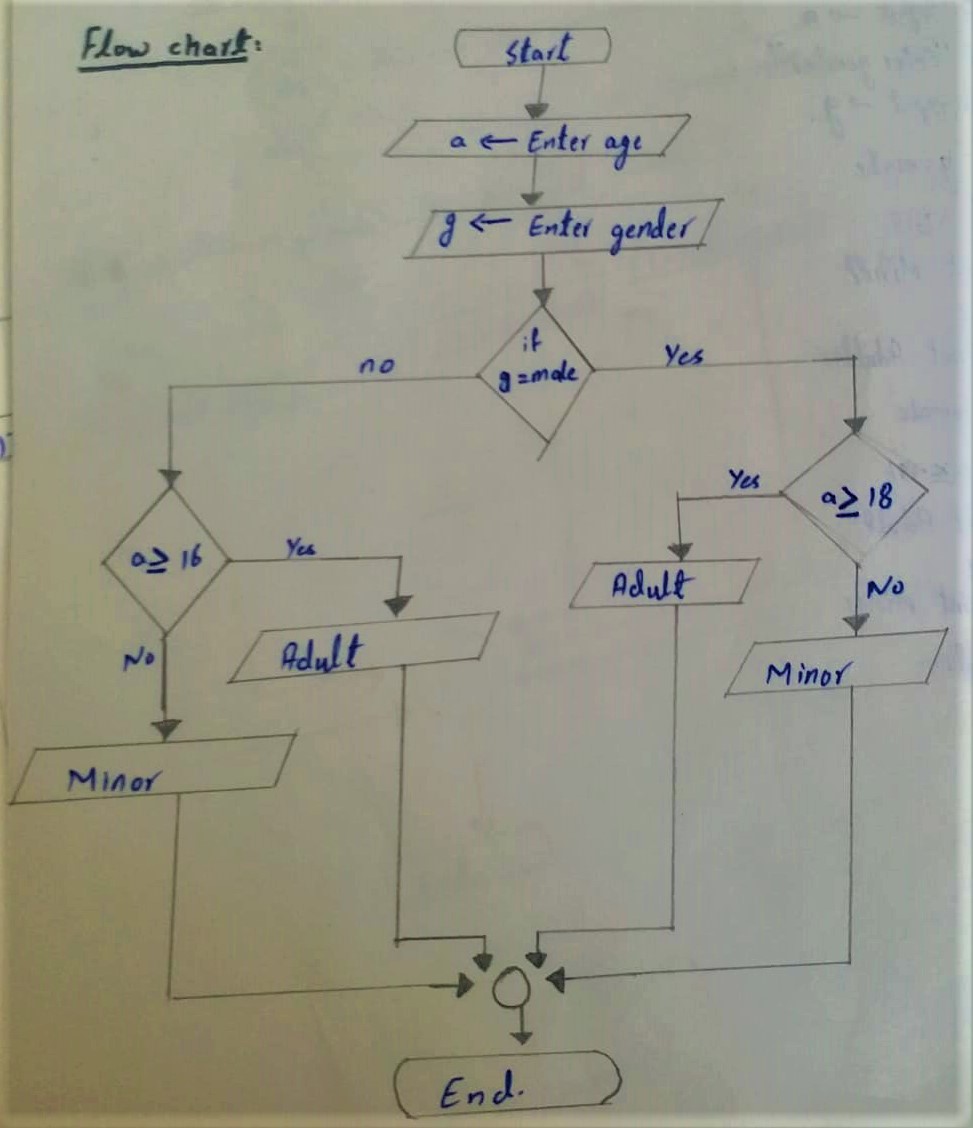 Flow chart:
Start
a ← Enter age
g ← Enter gender
if
g = male
no
Yes
a ≥ 16
Yes
No
Adult
Minor
a ≥ 18
Yes
No
Adult
Minor
End.